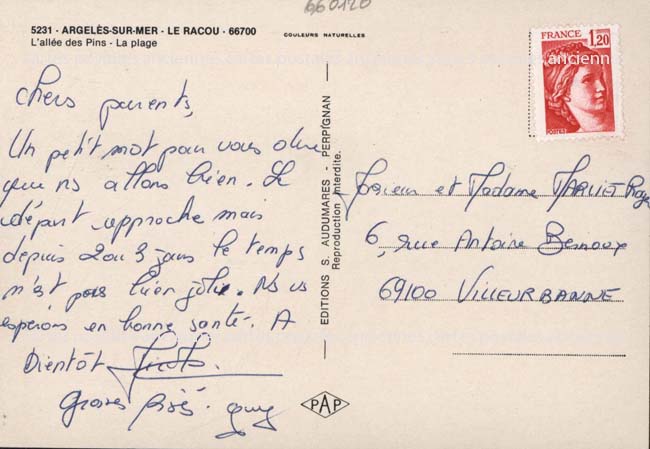 660120
5231 - ARGELÈS-SUR-MER - LE RACOU - 66700
L'allée des Pins - La plage
COULEURS NATURELLES
FRANCE
1,20
POSTES
ancienn
Chers parents,
Un petit mot pour vous dire
que ns allons bien. Le
départ approche mais
depuis 2 ou 3 jours le temps
n'est pas bien joli. Ns vs
espérons en bonne santé. A
Bientôt
Grosses bises. Guy
EDITIONS S. AUDUMARES - PERPIGNAN
Reproduction interdite.
PAP
Monsieur et Madame Roger
6, rue Antoine
69100 VILLEURBANNE